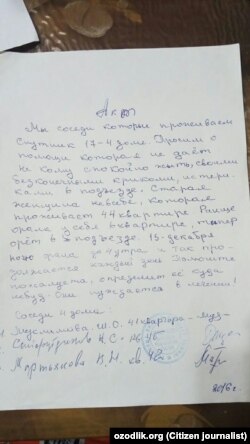 Акт
Мы соседи которые проживаем
Спутник 17-4 доме. Просим о
помощи которая не даёт
не кому спокойно жить, своими
безконечными криками, истери-
ками в подъезде. Старая
женщина невебе, которая
проживает 44 квартире Раньше
орала у себя в квартире, теперь
орёт в подъезде. 19-декабря
ночь до 4 утра и так про-
должается каждый день Помогите
пожалуйста, определите её куда
небудь она нуждается в лечении!
Соседи 4 дома:
Муслимова. Ш. С. 41 квартира -
С. кв 46
Мартынова В. Н. кв. 42
2016 г.
ozodlik.org (Citizen journalist)